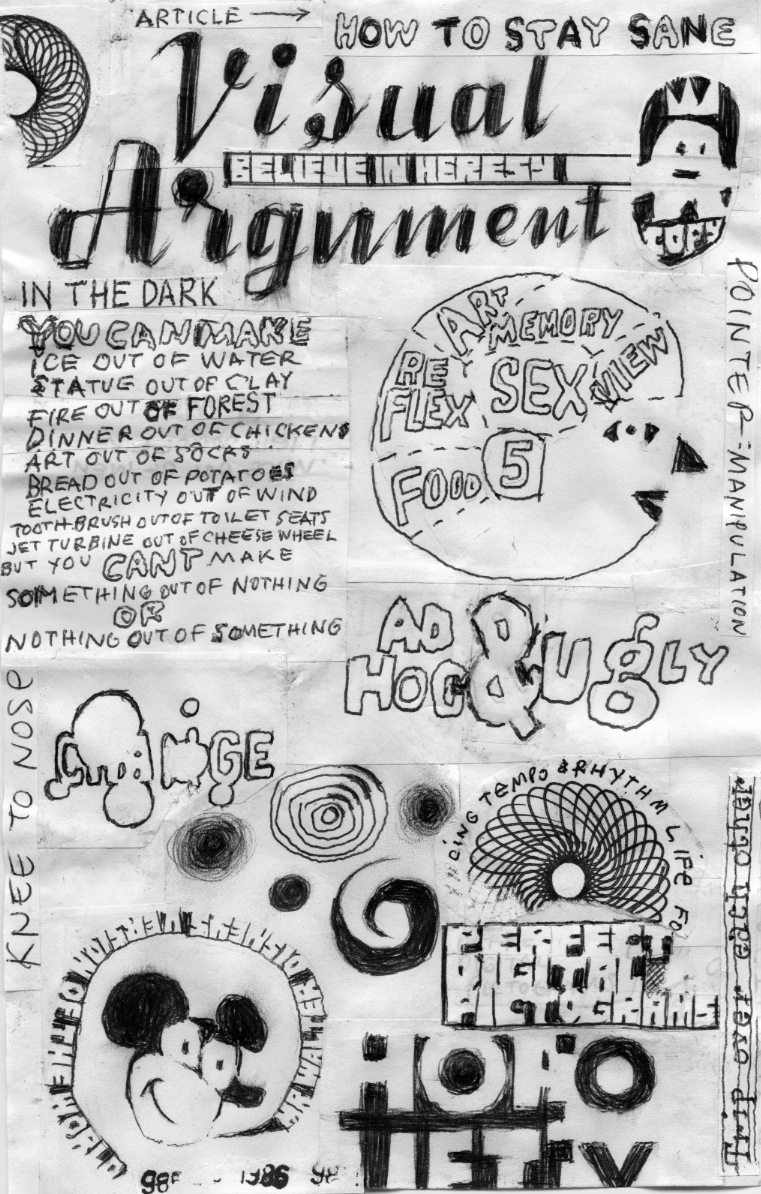 ARTICLE →
HOW TO STAY SANE
Visual
BELIEVE IN HERESY
Argument
COPY
IN THE DARK
YOU CAN MAKE
ICE OUT OF WATER
STATUE OUT OF CLAY
FIRE OUT OF FOREST
DINNER OUT OF CHICKENS
ART OUT OF SOCKS
BREAD OUT OF POTATOES
ELECTRICITY OUT OF WIND
TOOTH-BRUSH OUT OF TOILET SEATS
JET TURBINE OUT OF CHEESE WHEEL
BUT YOU CANT MAKE
SOMETHING OUT OF NOTHING
OR
NOTHING OUT OF SOMETHING
ART
MEMORY
RE
FLEX
SEX
VIEW
FOOD
5
POINTER-MANIPULATION
AD
HOC & UGLY
KNEE TO NOSE
CING TEMPO & RHYTHM LIFE FO
Trip over each other
WORLD
98
1986
98